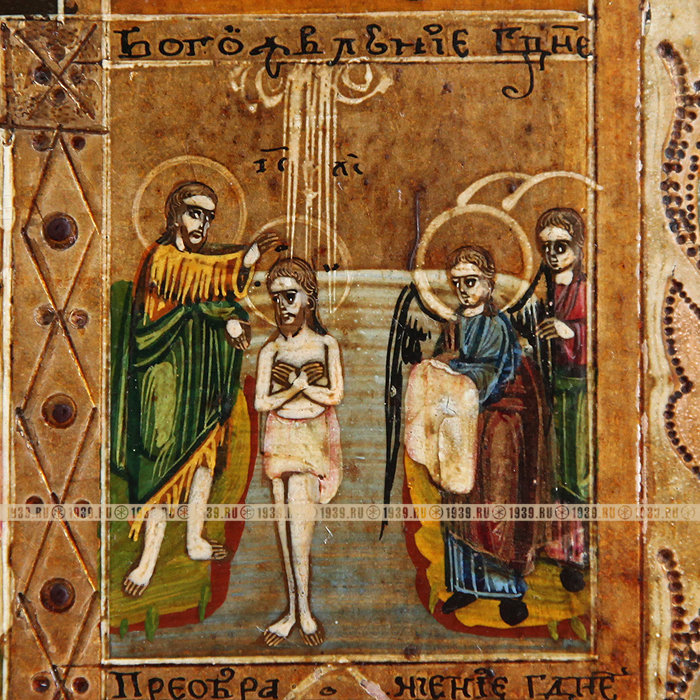 Богоѧвленїе гдн҃е
І҃С Х҃С
1939.RU 1939.RU 1939.RU 1939.RU 1939.RU 1939.RU 1939.RU 1939.RU 1939.RU
Преобра жченїе гдн҃е